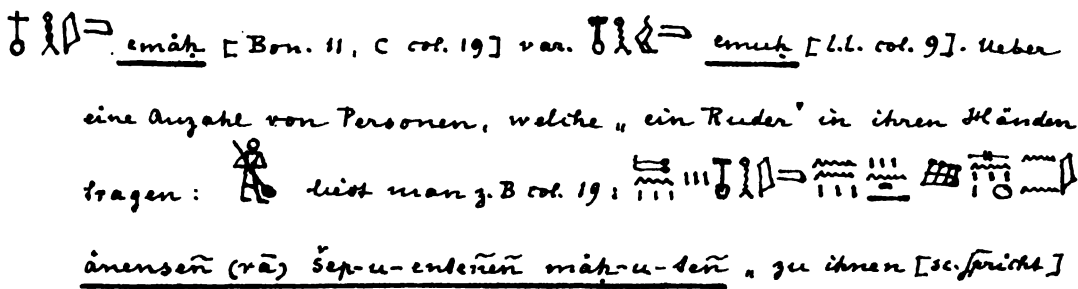 emȧḥ [Bon. 11, C col. 19] var. emuḥ [l.l. col. 9]. Ueber
eine Anzahl von Personen, welche „ein Ruder" in ihren Händen
tragen: liest man z. B col. 19:
ȧnensen̄ (rā) šep-u-enten̄en̄ mȧḥ-u-ten̄ „zu ihnen [sc. spricht]